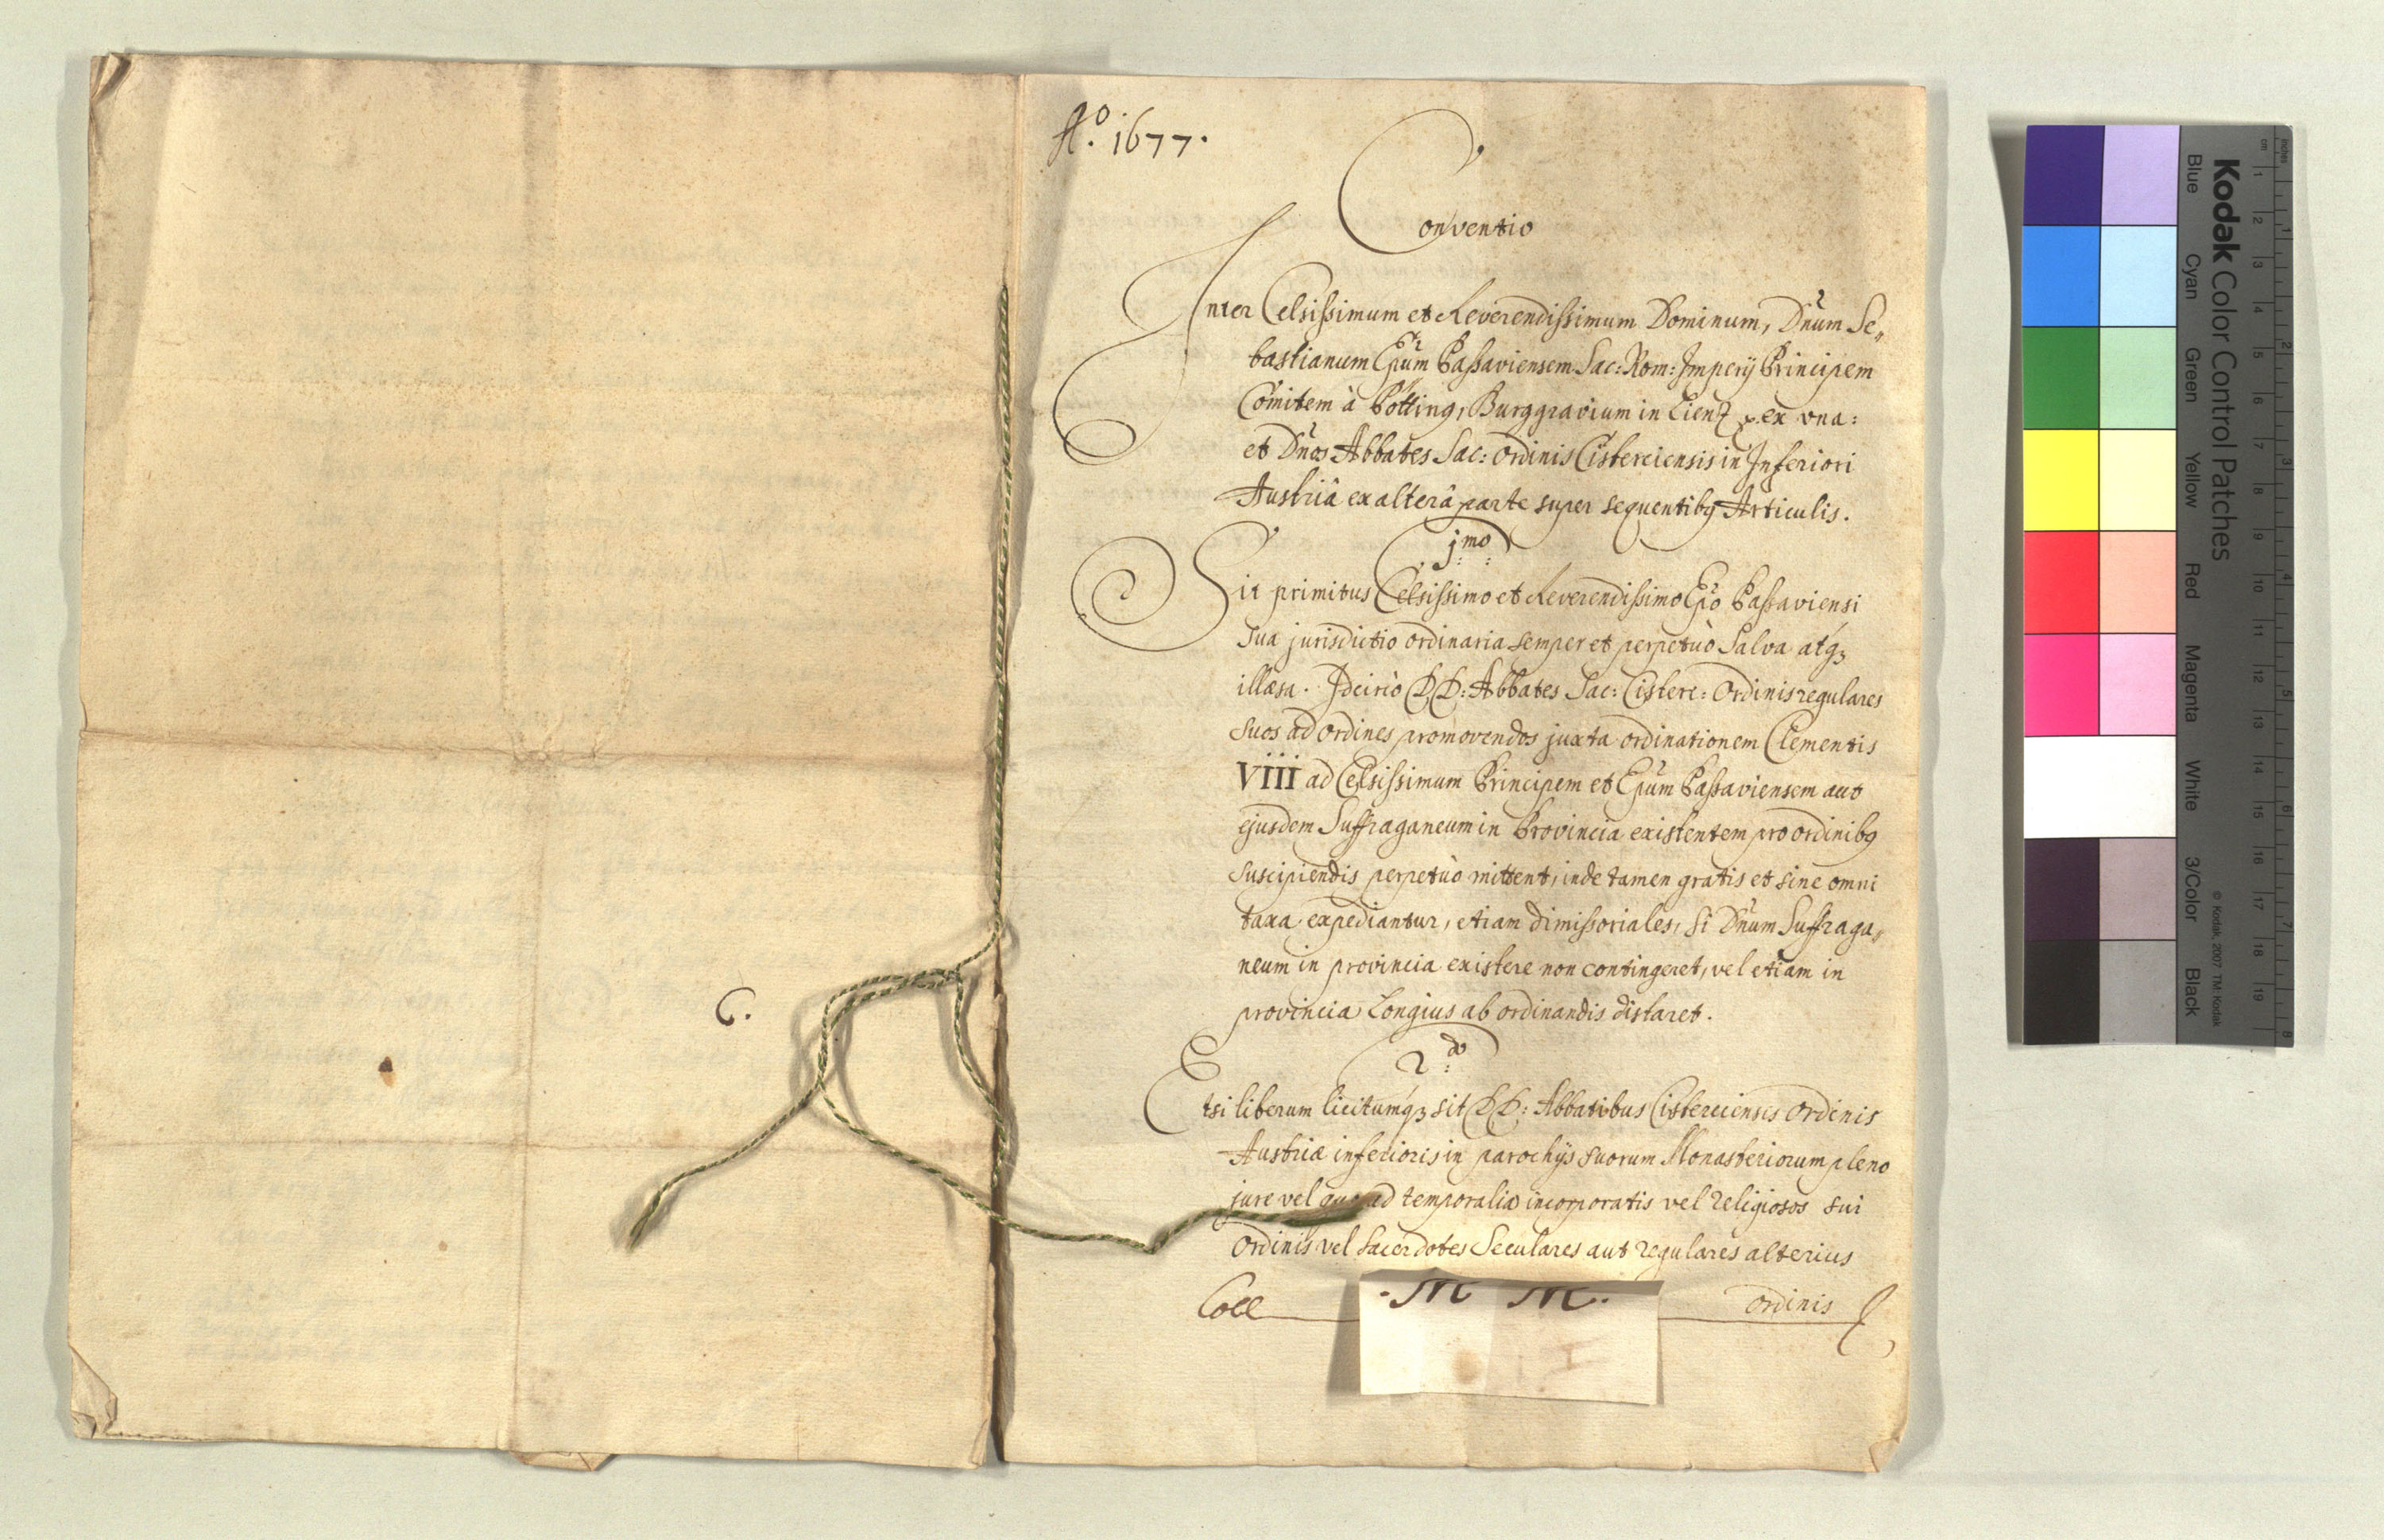 C.
Aº. 1677.
Conventio
Inter Celsissimum et Reverendissimum Dominum, Dnum Se„
bastianum Epum Passaviensem Sac: Rom: Imperÿ Principem
Comitem à Pötting, Burggravium in Lienz ex una:
et Dnos Abbates Sac: Ordinis Cisterciensis in Inferiori
Austriâ ex alterâ parte super sequentibg Articulis.
j.mo
Sit primitus Celsissimo et Reverendissimo Epo Passaviensi
sua jurisdictio ordinaria semper et perpetuò Salva atqz
illæsa. Idcircò DD: Abbates Sac: Cisterc: Ordinis regulares
suos ad ordines promovendos juxta ordinationem Clementis
VIII ad Celsissimum Principem et Epum Passaviensem aut
ejusdem Suffraganeum in Provincia existentem pro ordinibg
suscipiendis perpetuò mittent, inde tamen gratis et sine omni
taxa expediantur, etiam dimissoriales, si Dnum Suffraga„
neum in provincia existere non contingeret, vel etiam in
provincia Longius ab ordinandis distaret.
2.do
Etsi liberum licitumqz sit DD: Abbatibus Cisterciensis Ordinis
Austriæ inferioris in parochÿs suorum Monasteriorum pleno
jure vel quo ad temporalia incorporatis vel religiosos sui
Ordinis vel Sacerdotes Seculares aut regulares alterius
Coll M M. ordinis
Kodak Color Control Patches
Blue Cyan Green Yellow Red Magenta White 3/Color Black
© Kodak, 2007 TM: Kodak
cm 1 2 3 4 5 6 7 8 9 10 11 12 13 14 15 16 17 18 19
inches 1 2 3 4 5 6 7 8